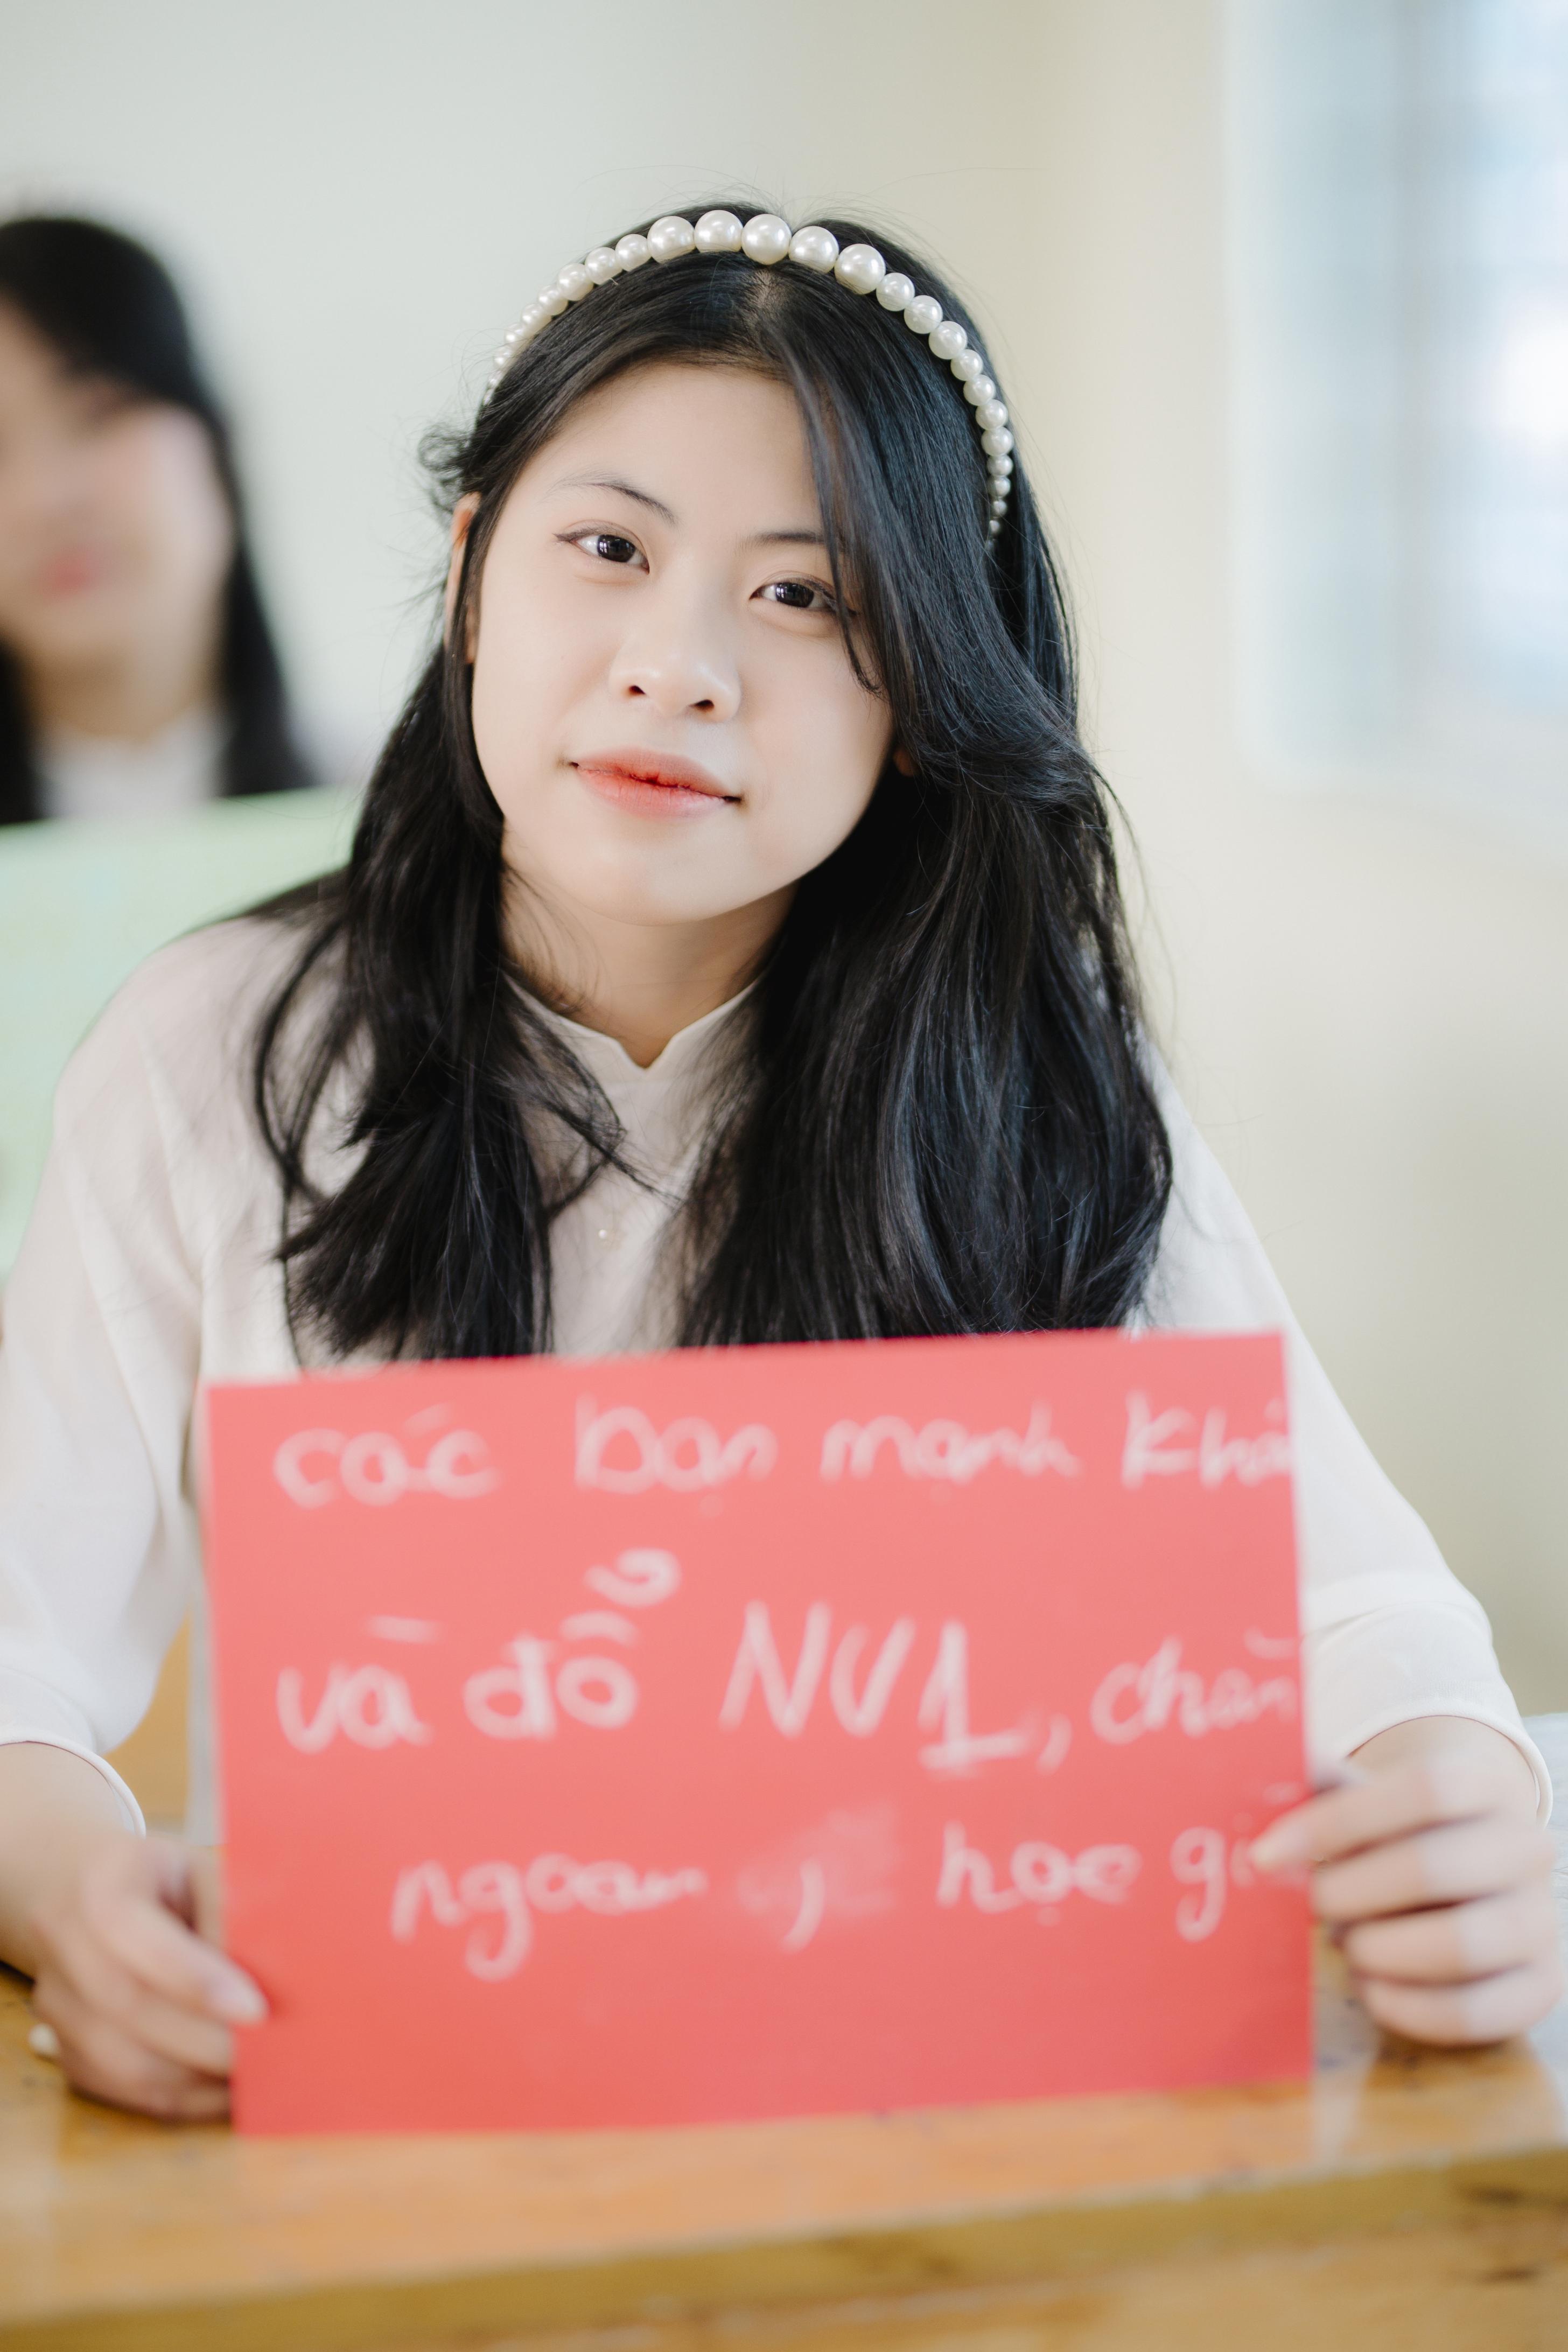 các bạn mạnh
và đỗ NV1, chăm
ngoan, học giỏi